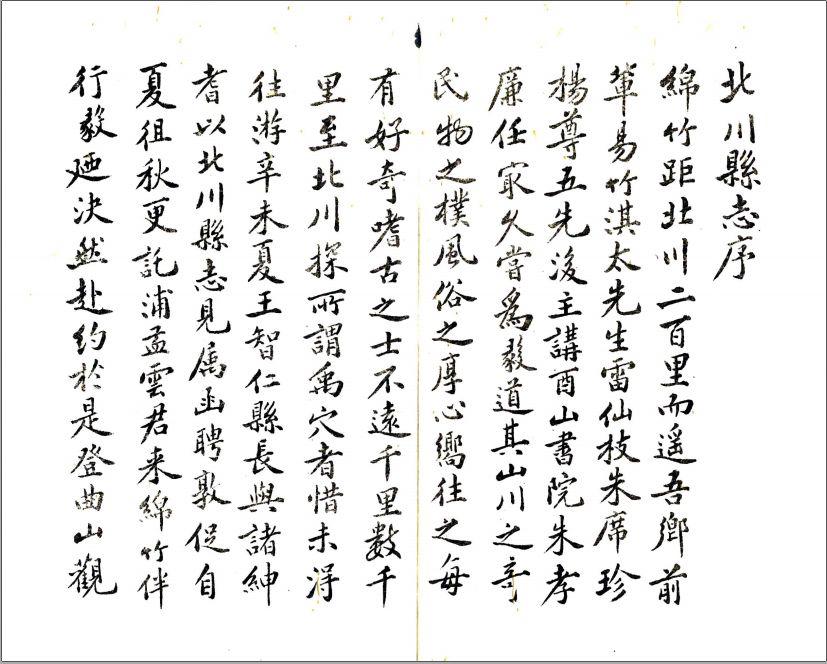 北川縣志序
綿竹距北川二百里而遥吾鄉前
輩易竹淇太先生雷仙枝朱席珍
楊尊五先後主講酉山書院朱孝
廉任㝡久嘗為毅道其山川之奇
民物之樸風俗之厚心嚮往之每
有好奇嗜古之士不遠千里數千
里至北川探所謂禹穴者惜未淂
往游辛未夏王智仁縣長與諸紳
耆以北川縣志見属函聘敦促自
夏徂秋更託浦孟雲君来綿竹伴
行毅廼決然赴約於是登曲山觀